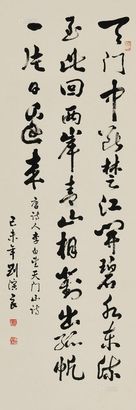 天门中断楚江開碧水东流
至此回两岸青山相對出孤帆
一片日邊来
唐诗人李白望天门山诗
己未年劉演良